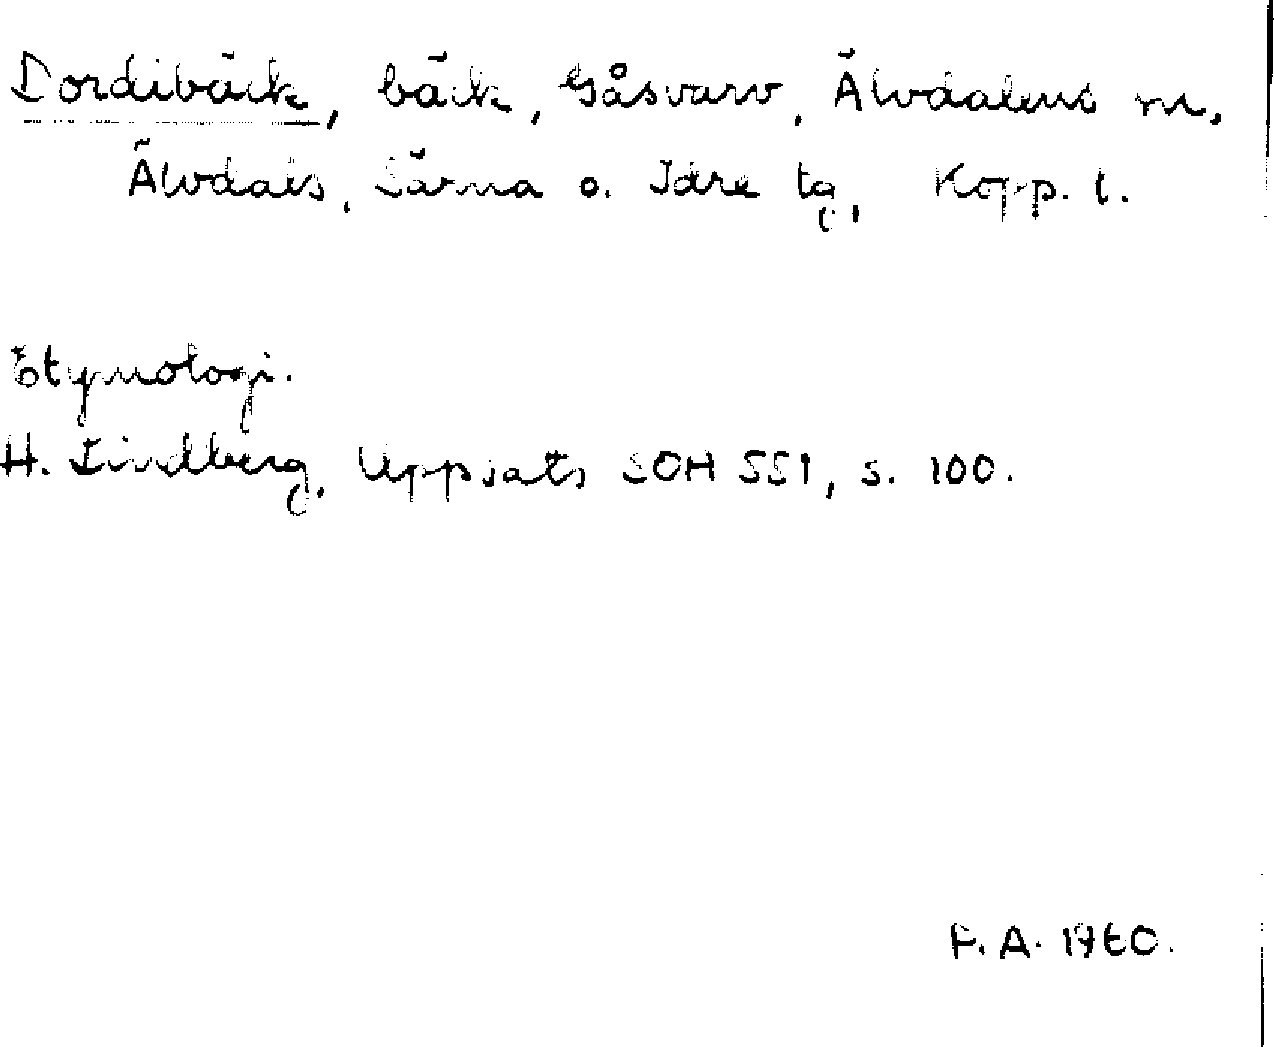 Dordibäck, bäck, Gåsvarv, Älvdalens m,
Älvdals, Särna o. Idre tg, Kopp. l.
Etymologi.
H. Lindberg, Uppsats SOH 551, s. 100.
P. A. 1960.